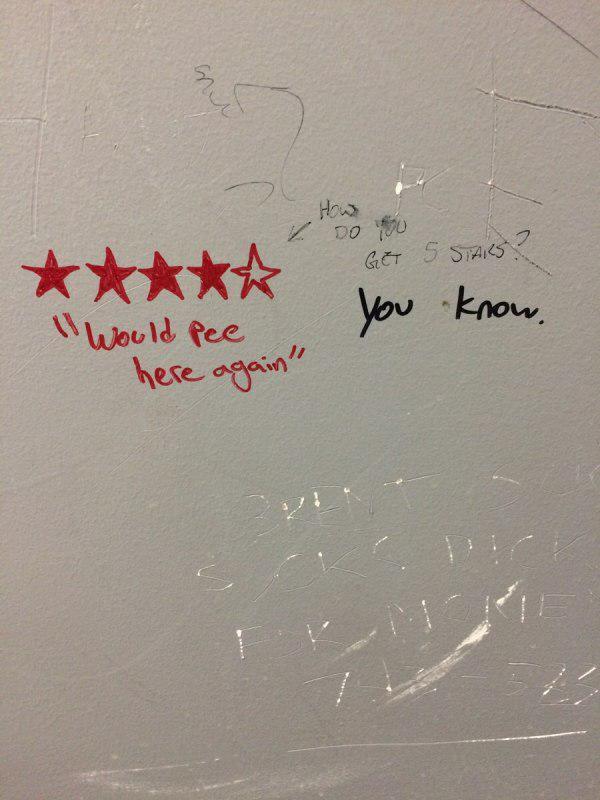 HOW
DO YOU
GET 5 STARS?
"Would pee
here again"
You know.
BRENT
SUCKS DICK
FOR MONEY